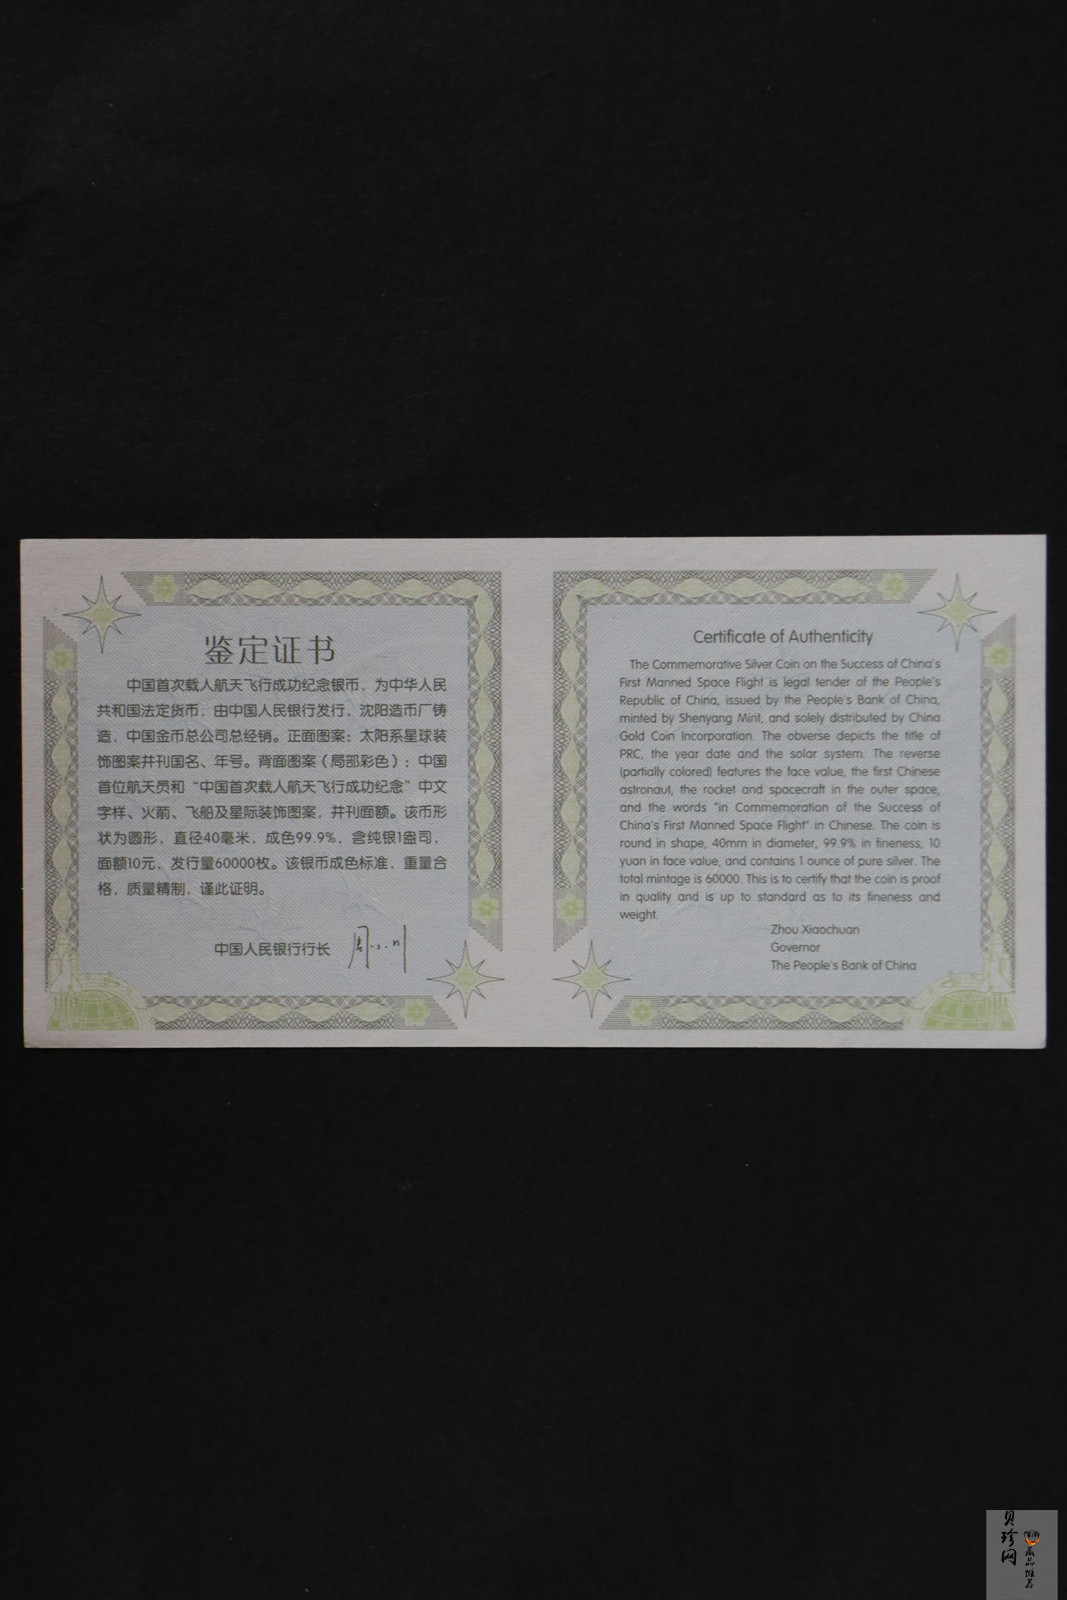 鉴定证书
中国首次载人航天飞行成功纪念银币，为中华人民
共和国法定货币，由中国人民银行发行，沈阳造币厂铸
造，中国金币总公司总经销。正面图案：太阳系星球装
饰图案并刊国名、年号。背面图案（局部彩色）：中国
首位航天员和“中国首次载人航天飞行成功纪念”中文
字样、火箭、飞船及星际装饰图案，并刊面额。该币形
状为圆形，直径40毫米，成色99.9%，含纯银1盎司，
面额10元，发行量60000枚。该银币成色标准，重量合
格，质量精制，谨此证明。
中国人民银行行长 周小川
Certificate of Authenticity
The Commemorative Silver Coin on the Success of China's
First Manned Space Flight is legal tender of the People's
Republic of China, issued by the People's Bank of China,
minted by Shenyang Mint, and solely distributed by China
Gold Coin Incorporation. The obverse depicts the title of
PRC, the year date and the solar system. The reverse
(partially colored) features the face value, the first Chinese
astronaut, the rocket and spacecraft in the outer space,
and the words "in Commemoration of the Success of
China's First Manned Space Flight" in Chinese. The coin is
round in shape, 40mm in diameter, 99.9% in fineness, 10
yuan in face value, and contains 1 ounce of pure silver. The
total mintage is 60000. This is to certify that the coin is proof
in quality and is up to standard as to its fineness and
weight.
Zhou Xiaochuan
Governor
The People's Bank of China
贝珍网
藏品推荐